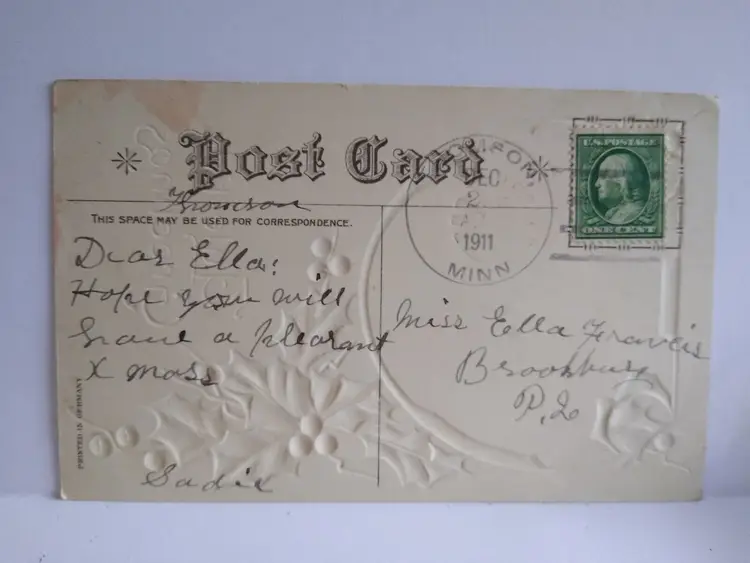 Post Card
Thomson
THIS SPACE MAY BE USED FOR CORRESPONDENCE.
Dear Ella:
Hope you will
have a pleasant
X mass
Sadie
PRINTED IN GERMANY
DEC
2
1911
MINN
U.S. POSTAGE
ONE CENT
Miss Ella Francis
P.Q